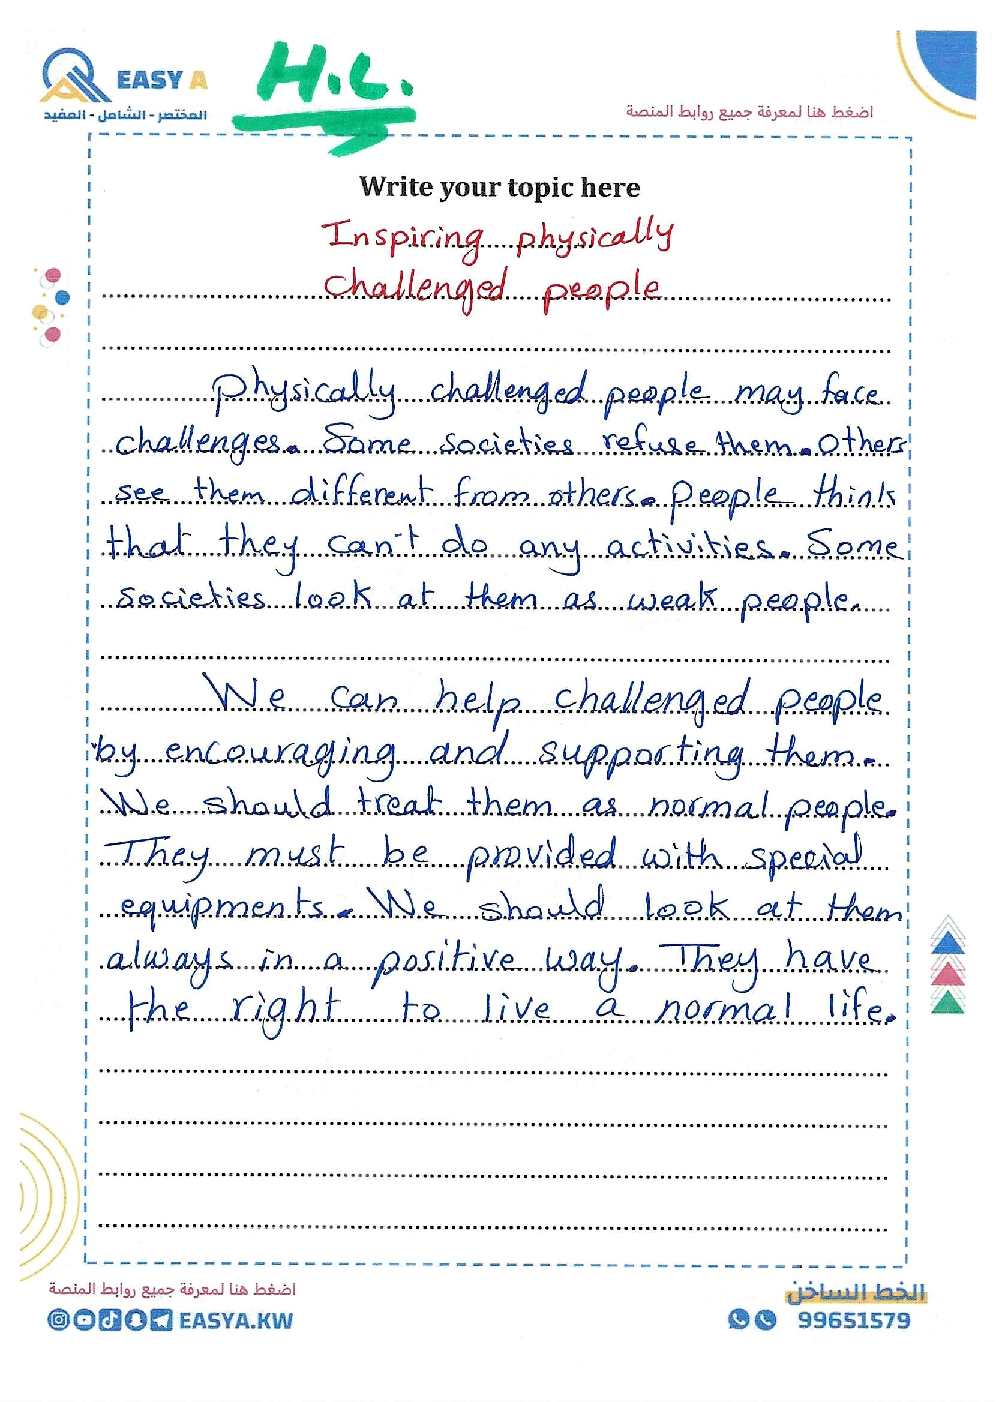 EASY A
المختصر - الشامل - المفيد
H.L.
اضغط هنا لمعرفة جميع روابط المنصة
Write your topic here
Inspiring physically
challenged people
Physically challenged people may face
challenges. Some societies refuse them. Others
see them different from others. People think
that they can't do any activities. Some
societies look at them as weak people.
We can help challenged people
by encouraging and supporting them.
We should treat them as normal people.
They must be provided with special
equipments. We should look at them
always in a positive way. They have
the right to live a normal life.
اضغط هنا لمعرفة جميع روابط المنصة
EASYA.KW
الخط الساخن
99651579